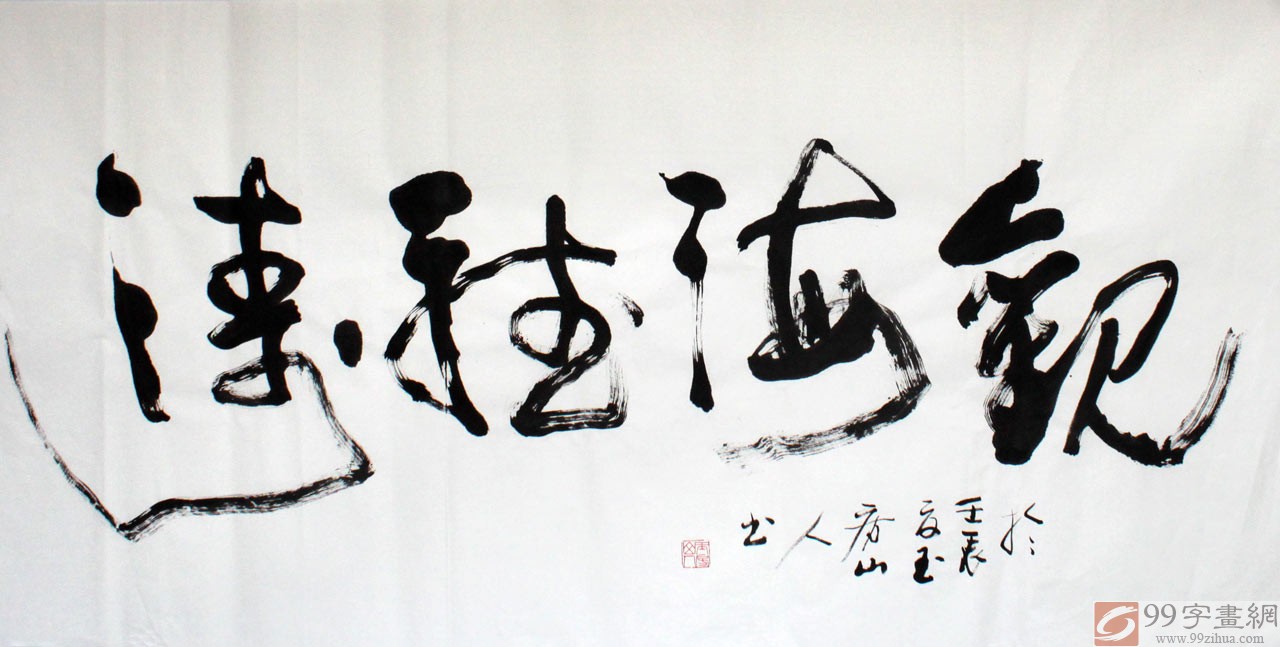 觀海聽濤
於
壬辰
山
人
书
99字畫網
www.99zihua.com